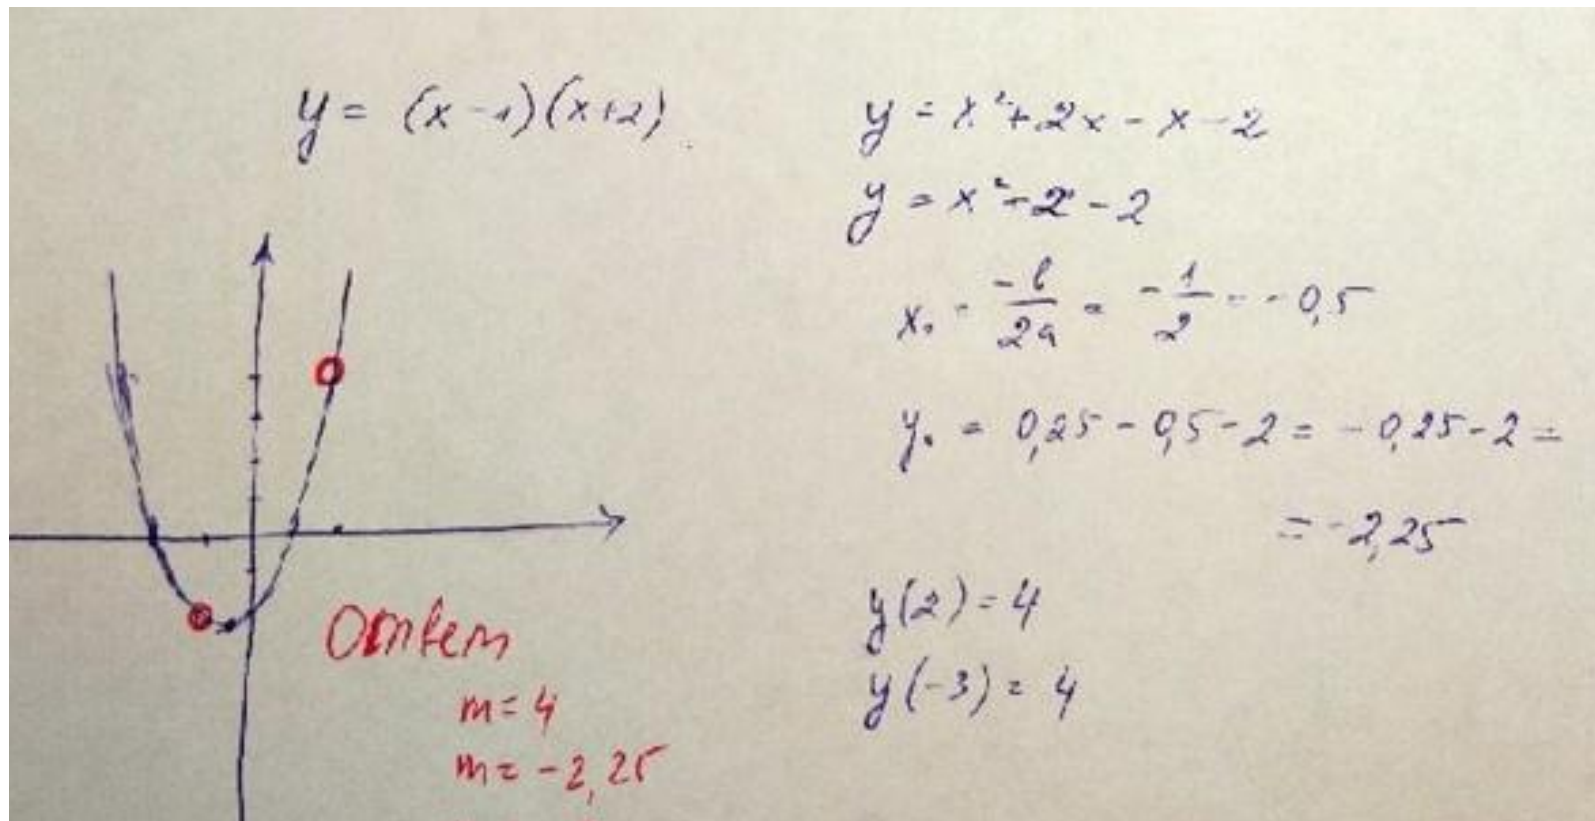 y = (x-1)(x+2)
y = x²+2x-x-2
y = x²+x-2
x₀ = -b/2a = -1/2 = -0,5
y₀ = 0,25-0,5-2 = -0,25-2 =
= -2,25
y(2) = 4
y(-3) = 4
Ответ
m = 4
m = -2,25